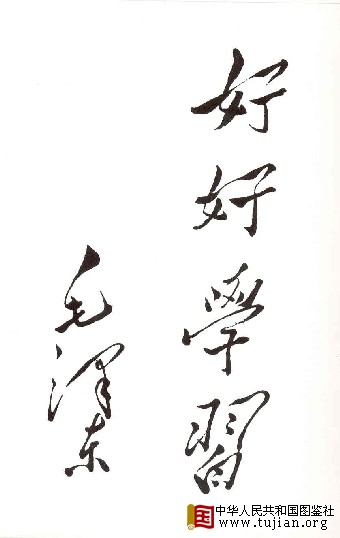 好好學習
毛泽东
中华人民共和国图鉴社
www.tujian.org
国